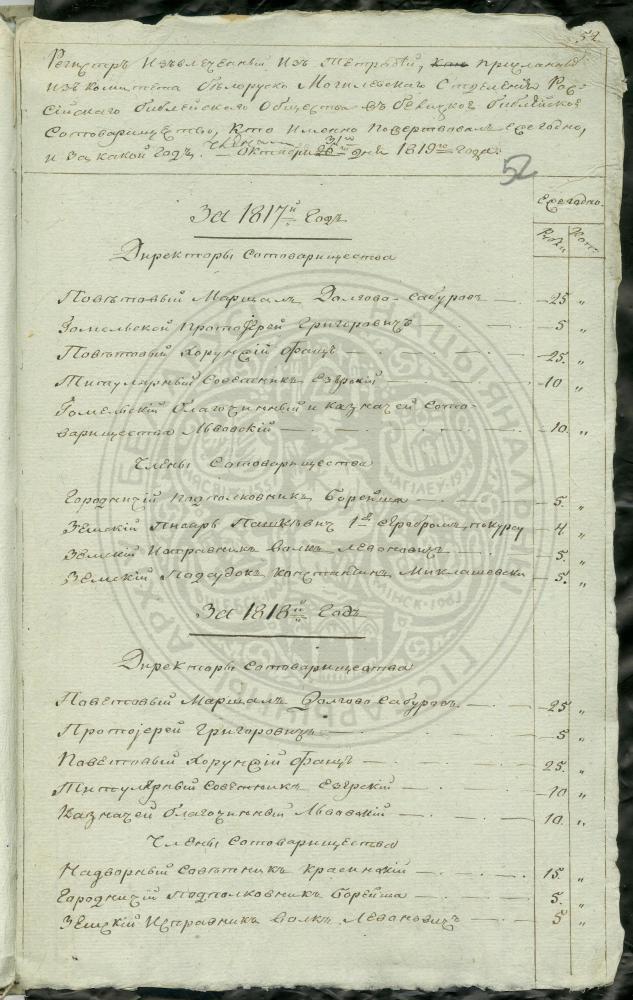 52
Регистръ Извлеченный Изъ Тетрадей, присланный
изъ комитета бѣлоруско Могилевскаго Отдѣленія Рос-
сійскаго библейского Общества въ библійское
Сотоварищество, Кто Именно пожертвовалъ ежегодно,
и за какой годъ. Октября 31го дня 1819го года.
52
ежегодно.
Рубли Коп:
За 1817й Годъ
Директоры Сотоварищества
Повѣтовый Маршалъ Долгово-Сабуровъ — 25 „
Гомельской Протоіерей Григоровичъ — 5 „
Повѣтовый Хорунжій Фащъ — 25. „
Титулярный Советникъ Езерскій — 10 „
Гомельскій благочинный и казначей Сото-
варищества Львовскій — 10. „
Члены Сотоварищества
Городничій Подполковникъ Борейша — 5. „
Земскій Писарь Пашкевич 1й серебромъ покурсу 4 „
Земскій Исправникъ Волкъ Левоновичъ — 5. „
Земскій Подсудокъ Константинъ Миклашевски — 5. „
За 1818й Годъ
Директоры Сотоварищества
Поветовый Маршалъ Долгово Сабуровъ — 25 „
Протоіерей Григоровичъ — 5 „
Поветовый Хорунжій Фащъ — 25. „
Титулярный Советникъ Езерскій — 10 „
Казначей благочинный Львовскій — 10. „
Члены Сотоварищества
Надворный Совѣтникъ Красинскій — 15. „
Городничій Подполковникъ Борейша — 5. „
Земскій Исправникъ Волкъ Левановичъ — 5 „